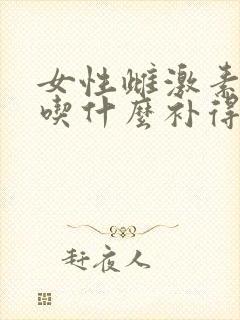 女性雌激素
喫什麼补得
赶夜人